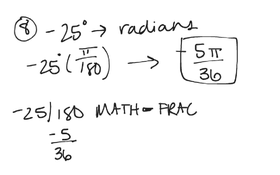 ⑧ -25° → radians
-25° (π/180) → -5π/36
-25/180 MATH ▸ FRAC
-5/36